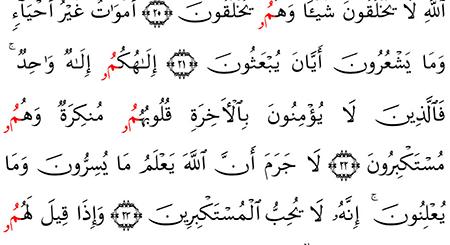 ٱللَّهِ لَا يَخْلُقُونَ شَيْـًٔا وَهُمُۥ يُخْلَقُونَ ۝٢٠ أَمْوَٰتٌ غَيْرُ أَحْيَآءٍ
وَمَا يَشْعُرُونَ أَيَّانَ يُبْعَثُونَ ۝٢١ إِلَـٰهُكُمُۥ إِلَـٰهٌ وَٰحِدٌ ۚ
فَٱلَّذِينَ لَا يُؤْمِنُونَ بِٱلْـَٔاخِرَةِ قُلُوبُهُمُۥ مُنكِرَةٌ وَهُمُۥ
مُسْتَكْبِرُونَ ۝٢٢ لَا جَرَمَ أَنَّ ٱللَّهَ يَعْلَمُ مَا يُسِرُّونَ وَمَا
يُعْلِنُونَ ۚ إِنَّهُۥ لَا يُحِبُّ ٱلْمُسْتَكْبِرِينَ ۝٢٣ وَإِذَا قِيلَ لَهُمُۥ